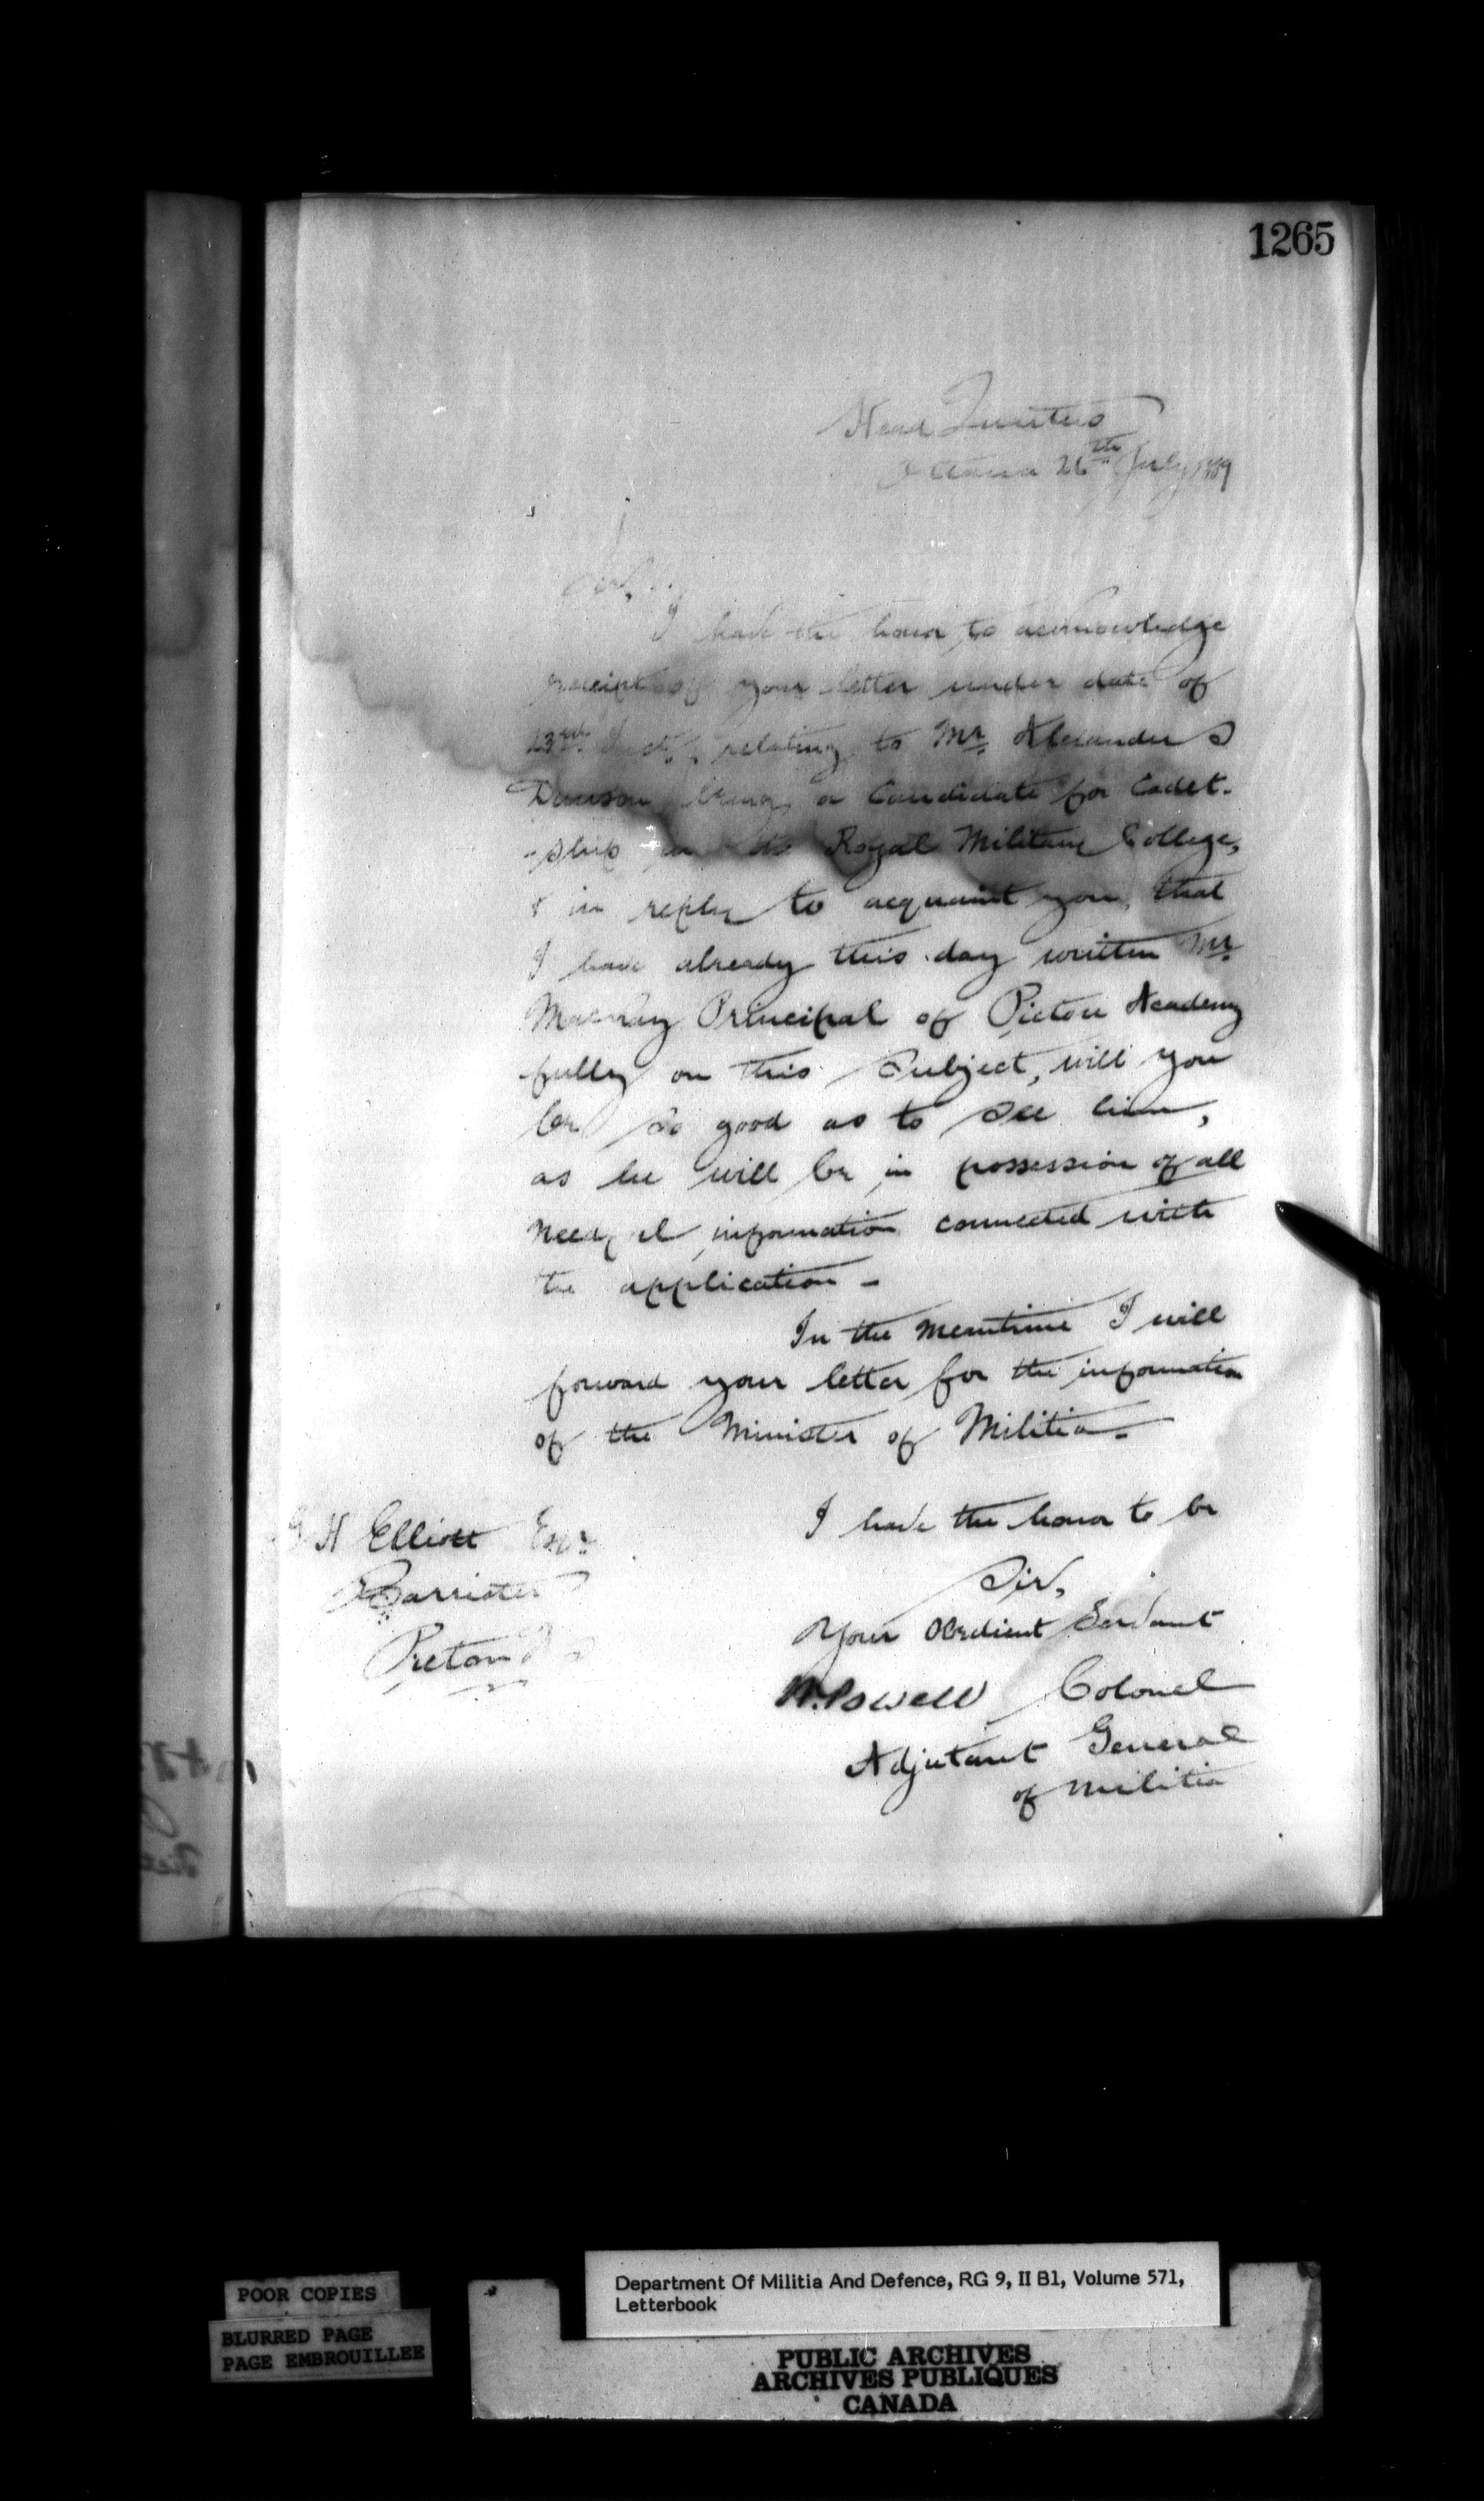 1265
Head Quarters
Ottawa 26th July 1879
Sir,
I have the honor to acknowledge
receipt of your letter under date of
23rd Inst., relating to Mr. Alexander
being a Candidate for Cadet-
-ship in the Royal Military College,
& in reply to acquaint you, that
I have already this day written Mr.
Principal of Pictou Academy
fully on this Subject, will you
be so good as to see him,
as he will be in possession of all
needful information connected with
the application -
In the meantime I will
forward your letter for the information
of the Minister of Militia.
I have the honor to be
Sir,
Your Obedient Servant
W. Powell Colonel
Adjutant General
of Militia
H Elliott Esqr
Barrister
Pictou
POOR COPIES
BLURRED PAGE
PAGE EMBROUILLEE
Department Of Militia And Defence, RG 9, II B1, Volume 571,
Letterbook
PUBLIC ARCHIVES
ARCHIVES PUBLIQUES
CANADA